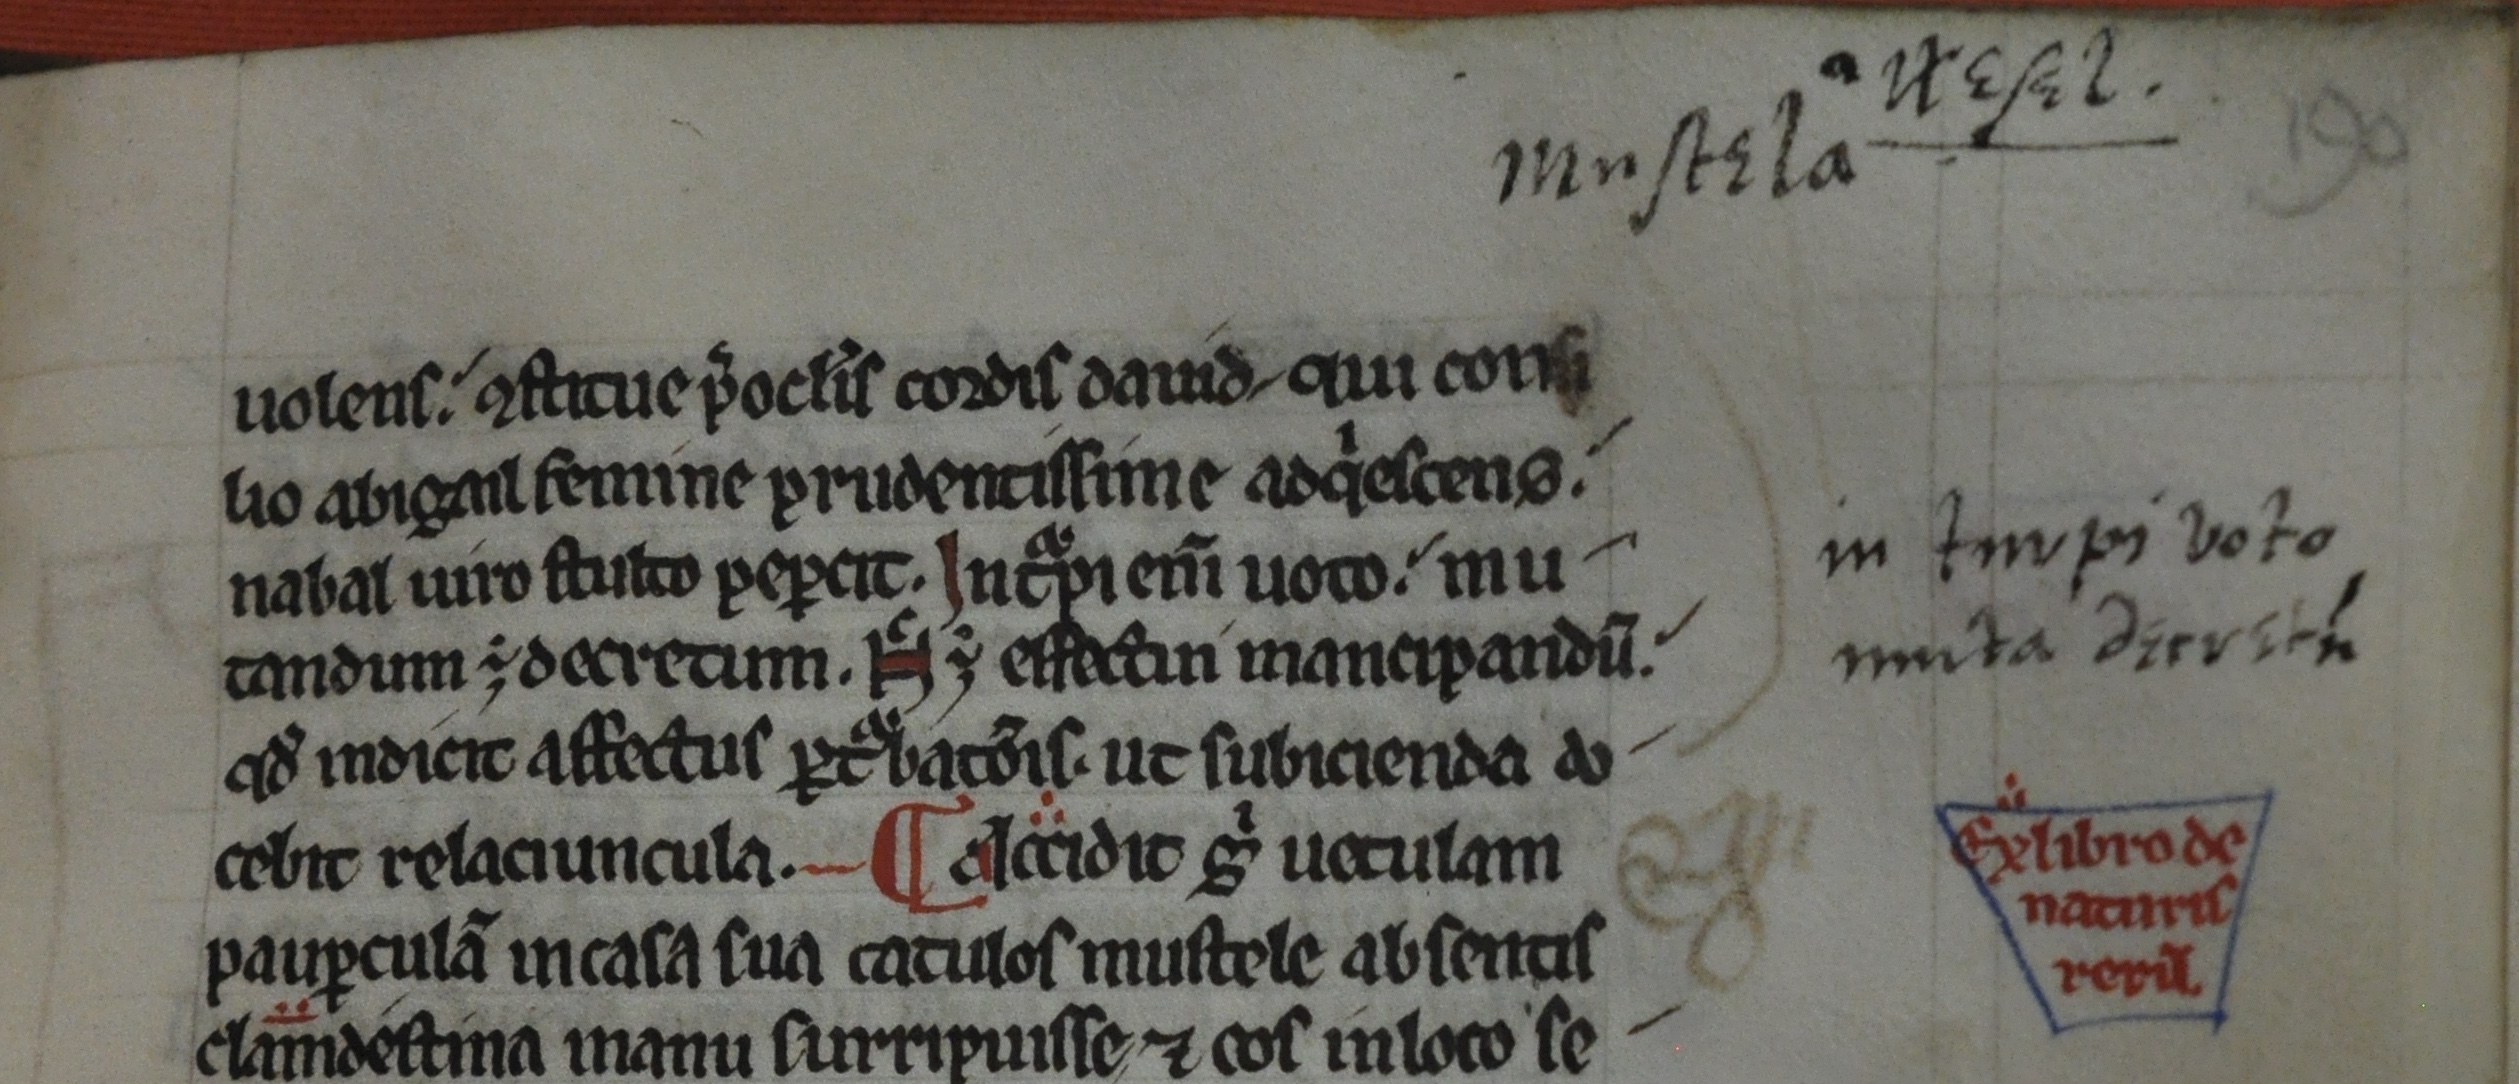 a Wesel.
Mustela
190
uolens. ꝯstitue p̄ ocłis cordis dauid, qui consi
lio abigail femine prudentissime adqͥescens.
nabal uiro stulto peꝑcit. In tᵃpi em̄ uoto. mu
tandum ē decretum. effectui mancipandū.
qd̓ indicit affectus ꝑtᵃbatōis. ut subicienda do
cebit relaciuncula. ¶ Accidit gͥ uetulam
pauꝑculā in casa sua catulos mustele absentis
clamdestina manu surripuisse, ⁊ eos in loco se
in turpi voto
muta decretū
Ex libro de
naturis
rerū.